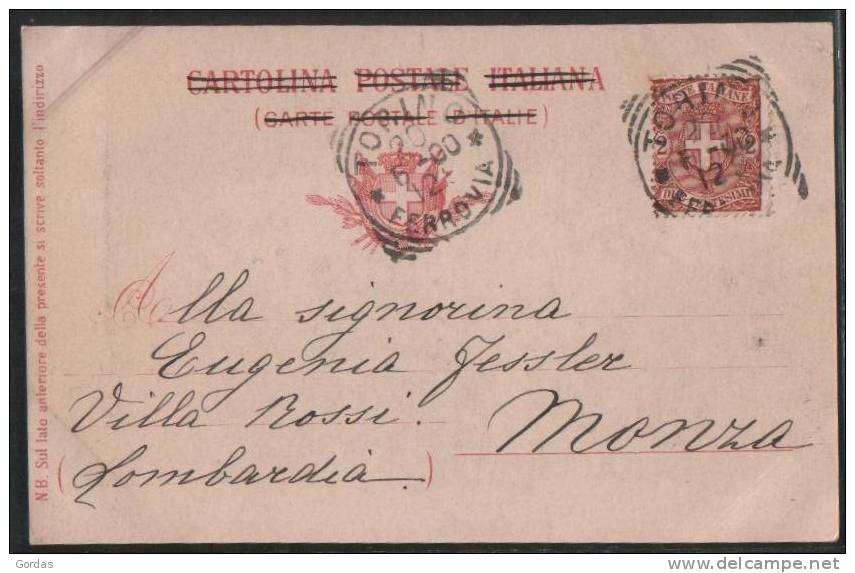 CARTOLINA POSTALE ITALIANA
(CARTE POSTALE D'ITALIE)
TORINO
2-00
12
* FERROVIA *
POSTE ITALIANE
TORINO
12
Alla signorina
Eugenia Jessler
Villa Rossi. Monza
(Lombardia)
N.B. Sul lato anteriore della presente si scrive soltanto l'indirizzo
Gordas
delcampe.net